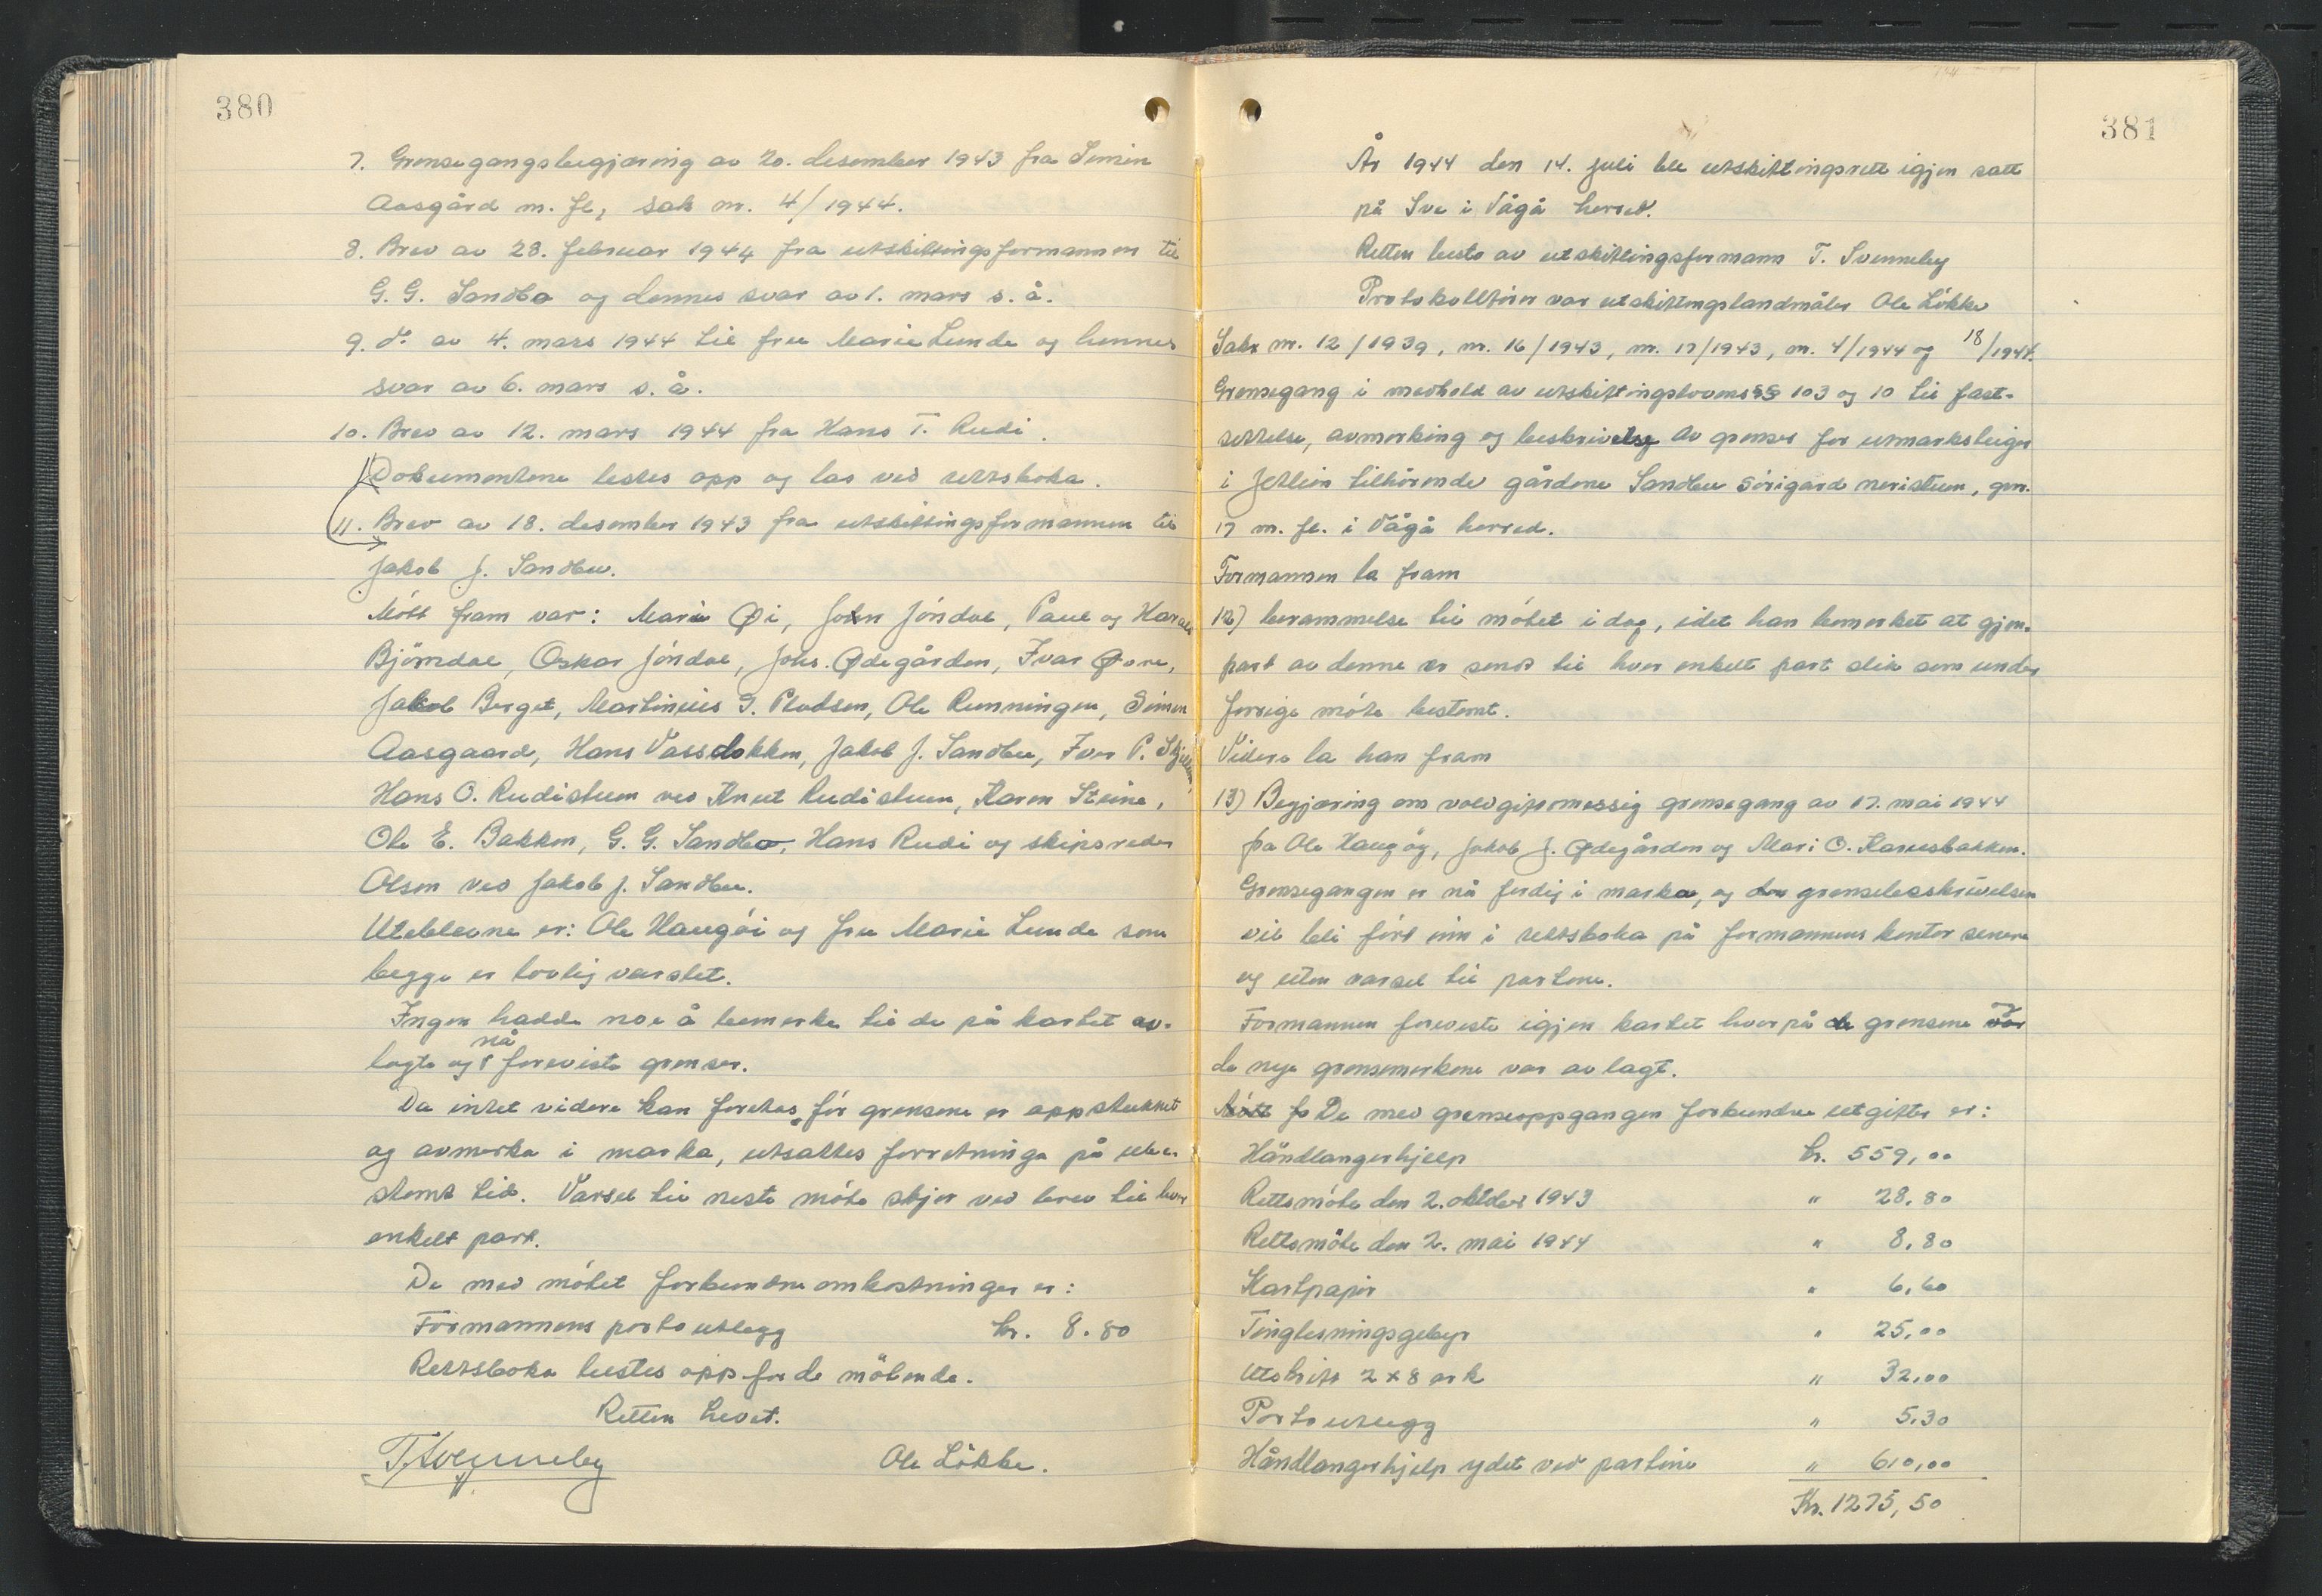 380
7. Grensegangsbegjæring av 20. desember 1943 fra Simen
Aasgård m. fl, sak nr. 4/1944.
8. Brev av 28. februar 1944 fra utskiftingsformannen til
G. G. Sandbo og dennes svar av 1. mars s. å.
9. do av 4. mars 1944 til fru Marie Lunde og hennes
svar av 6. mars s. å.
10. Brev av 12. mars 1944 fra Hans T. Rudi.
Dokumentene lestes opp og las ved rettsboka.
11. Brev av 18. desember 1943 fra utskiftingsformannen til
Jakob J. Sandbu.
Mött fram var: Mari Øi, John Jöndal, Paul og Harald
Björndal, Oskar Jöndal, Johs. Ødegården, Ivar Øvre,
Jakob Berget, Martinius I. Pladsen, Ole Runningen, Simen
Aasgaard, Hans Vassdokken, Jakob J. Sandbu, Iver P.
Hans O. Rudistuen ved Knut Rudistuen, Karen Steine,
Ole E. Bakken, G. G. Sandbo, Hans Rudi og skipsreder
Olsen ved Jakob J. Sandbu.
Uteblevne er: Ole Haugöi og fru Marie Lunde som
begge er lovlig varslet.
Ingen hadde noe å bemerke til de på kartet av-
lagte og nå foreviste grenser.
Da intet videre kan foretas för grensene er oppstukket
og avmerka i marka, utsattes forretninga på ube-
stemt tid. Varsel til neste möte skjer ved brev til hver
enkelt part.
De med mötet forbundne omkostninger er:
Formannens portoutlegg kr. 8.80
Rettsboka lestes opp for de mötende.
Retten hevet.
T. Svenneby Ole Lökke.
381
År 1944 den 14. juli ble utskiftingsrett igjen satt
på Sve i Vågå herred.
Retten besto av utskiftingsformann T. Svenneby
Protokollförer var utskiftingslandmåler Ole Lökke
Sak nr. 12/1939, nr. 16/1943, nr. 17/1943, nr. 4/1944 og 18/1944.
Grensegang i medhold av utskiftingslovens §§ 103 og 10 til fast-
settelse, avmerking og beskrivelse av grenser for utmarksteiger
i Jetlien tilhörende gårdene Sandbu sörigard neristuen, gnr.
17 m. fl. i Vågå herred.
Formannen la fram
12) berammelse til mötet i dag, idet han bemerket at gjen-
part av denne er send til hver enkelt part slik som under
forrige möte bestemt.
Videre la han fram
13) Begjæring om voldgiftsmessig grensegang av 17. mai 1944
fra Ole Haugöy, Jakob J. Ødegården og Mari O. Karusbakken.
Grensegangen er nå ferdig i marka, og den grensebeskrivelsen
vil bli fört inn i rettsboka på formannens kontor senere
og uten varsel til partene.
Formannen foreviste igjen kartet hvorpå de grensene og
de nye grensemerkene var avlagt.
Mött fr De med grenseoppgangen forbundne utgifter er:
Håndlangerhjelp kr. 559,00
Rettsmöte den 2. oktober 1943 " 28.80
Rettsmöte den 2. mai 1944 " 8.80
Kartpapir " 6,60
Tinglesningsgebyr " 25,00
Utskift 2 x 8 ark " 32,00
Porto utlegg " 5.30
Håndlangerhjelp ydet ved partene " 610,00
Kr. 1275,50